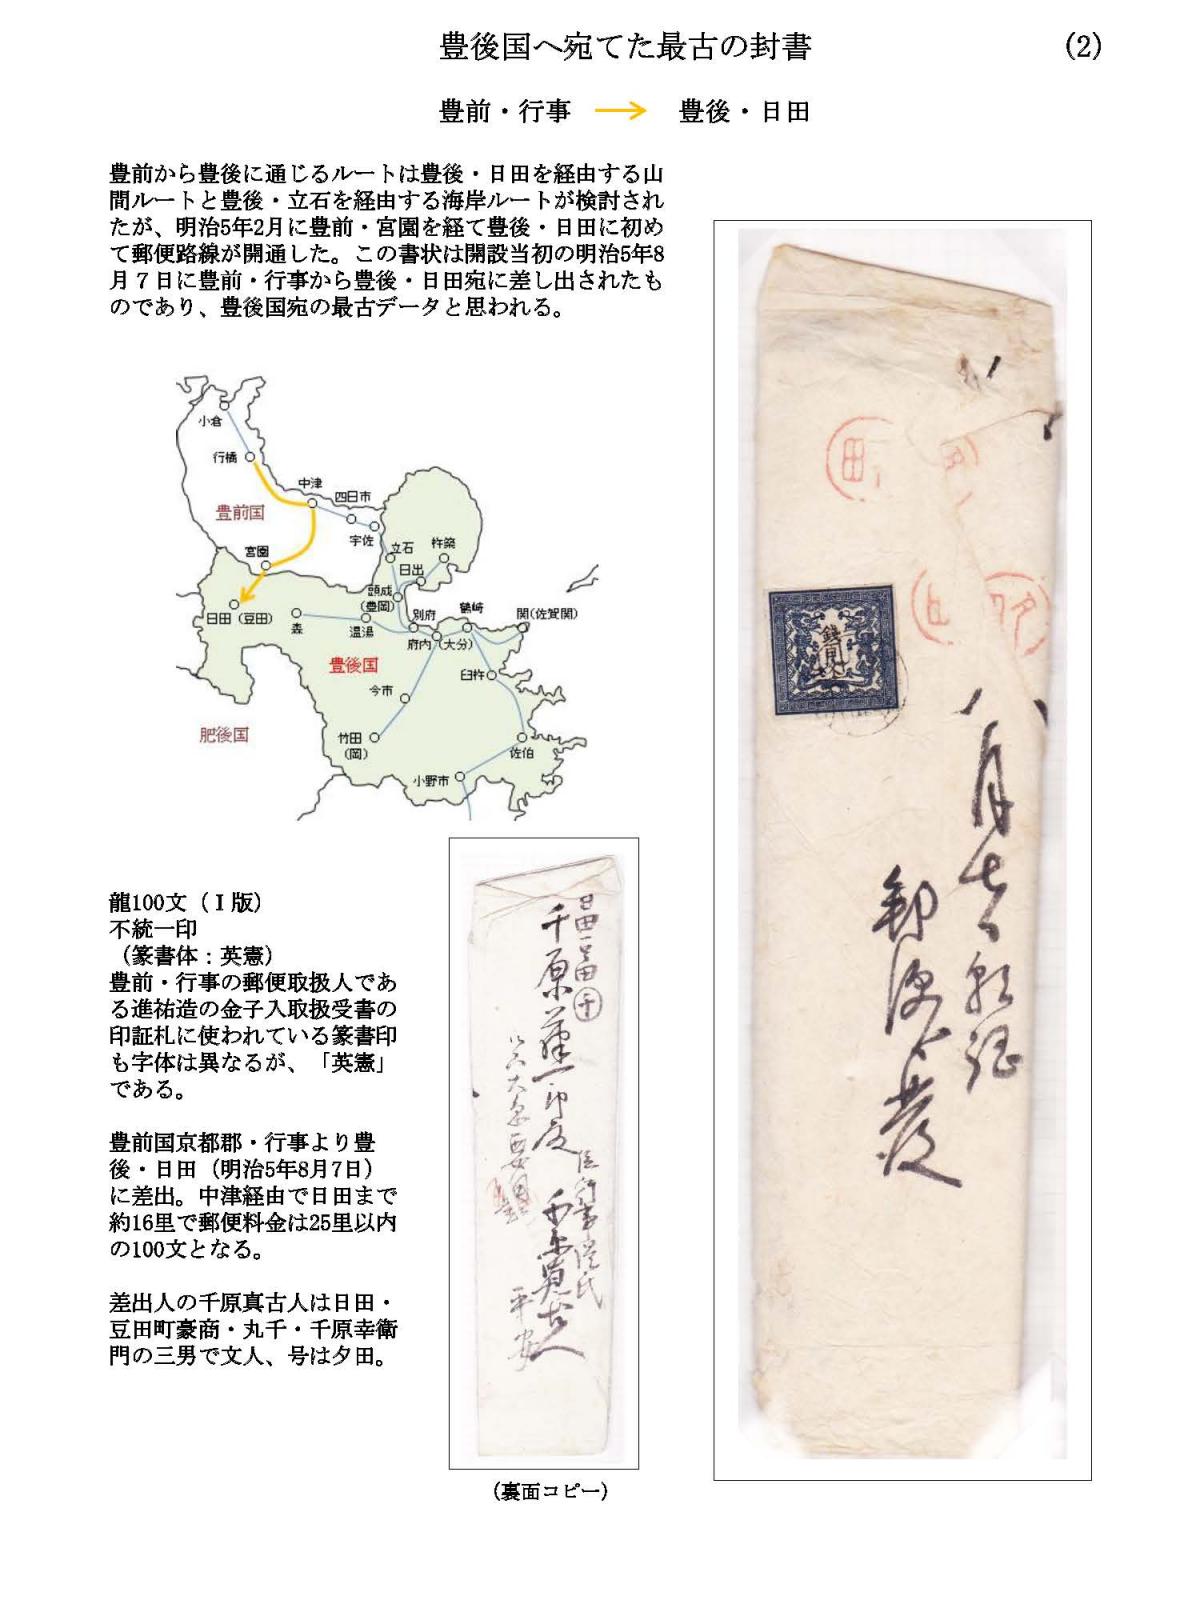 豊後国へ宛てた最古の封書
(2)
豊前・行事 → 豊後・日田
豊前から豊後に通じるルートは豊後・日田を経由する山
間ルートと豊後・立石を経由する海岸ルートが検討され
たが、明治5年2月に豊前・宮園を経て豊後・日田に初め
て郵便路線が開通した。この書状は開設当初の明治5年8
月７日に豊前・行事から豊後・日田宛に差し出されたも
のであり、豊後国宛の最古データと思われる。
小倉
行橋
中津
四日市
豊前国
宇佐
宮園
立石
杵築
日出
頭成
(豊岡)
日田（豆田）
森
温湯
別府
鶴崎
関(佐賀関)
府内(大分)
豊後国
臼杵
今市
肥後国
竹田
(岡)
佐伯
小野市
龍100文（Ⅰ版）
不統一印
（篆書体：英憲）
豊前・行事の郵便取扱人であ
る進祐造の金子入取扱受書の
印証札に使われている篆書印
も字体は異なるが、「英憲」
である。
豊前国京都郡・行事より豊
後・日田（明治5年8月7日）
に差出。中津経由で日田まで
約16里で郵便料金は25里以内
の100文となる。
差出人の千原真古人は日田・
豆田町豪商・丸千・千原幸衛
門の三男で文人、号は夕田。
日田豆田千
千原藤一郎
平安
(裏面コピー)
銭百文
郵便